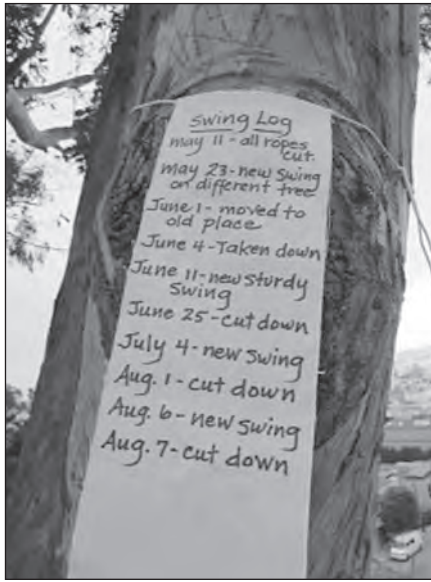 Swing Log
may 11 - all ropes
cut.
may 23 - new swing
on different tree
June 1 - moved to
old place
June 4 - Taken down
June 11 - new sturdy
swing
June 25 - cut down
July 4 - new swing
Aug. 1 - cut down
Aug. 6 - new swing
Aug. 7 - cut down